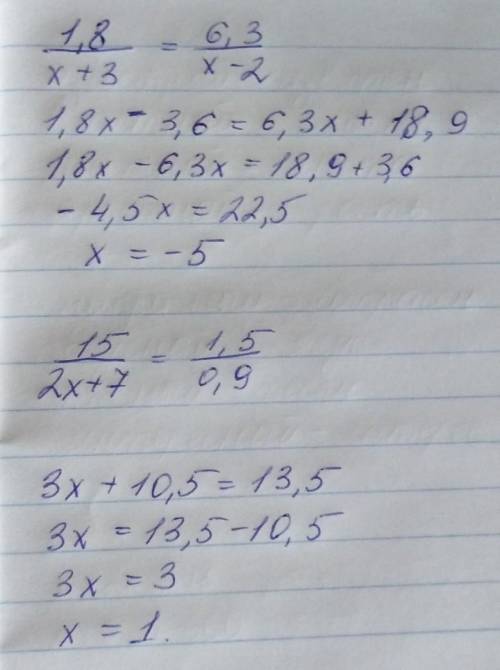 1,8/(x+3) = 6,3/(x-2)
1,8x - 3,6 = 6,3x + 18,9
1,8x - 6,3x = 18,9 + 3,6
- 4,5x = 22,5
x = -5
15/(2x+7) = 1,5/0,9
3x + 10,5 = 13,5
3x = 13,5 - 10,5
3x = 3
x = 1.